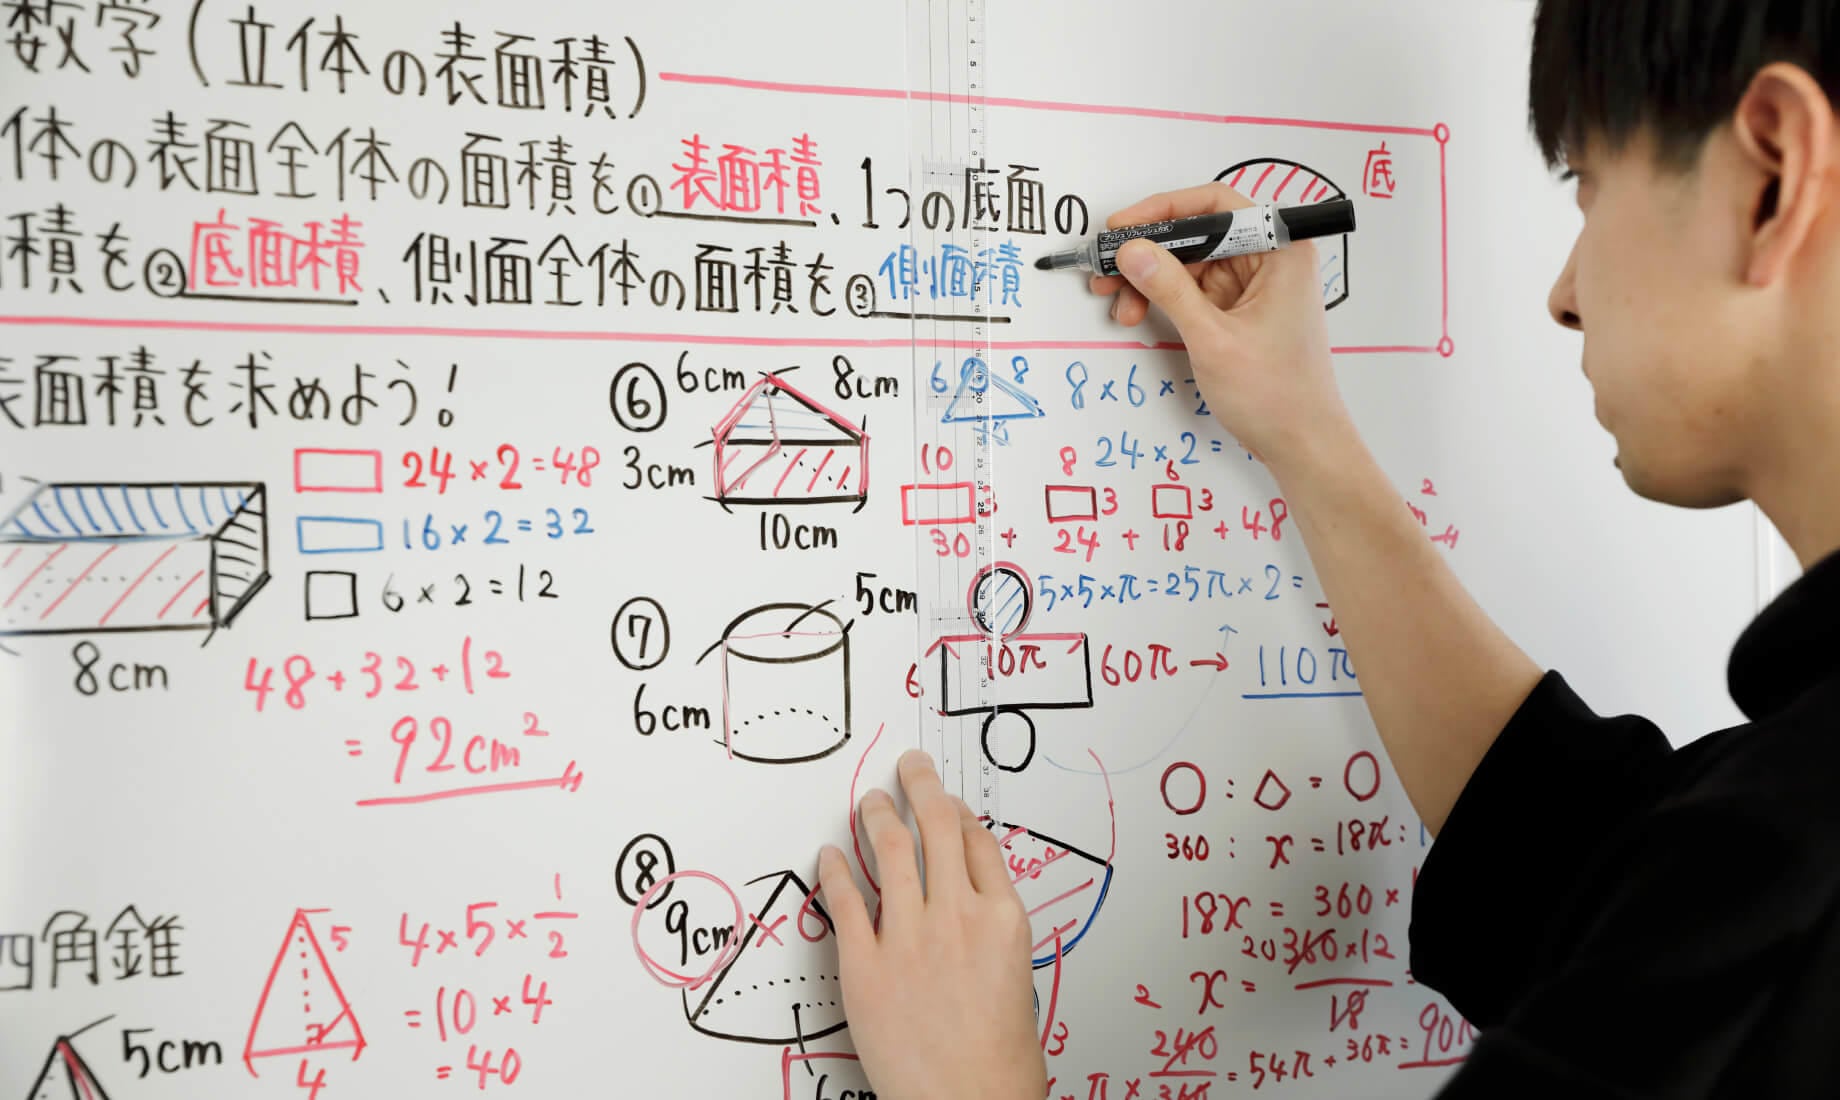 数学(立体の表面積)
体の表面全体の面積を①表面積、1つの底面の
積を②底面積、側面全体の面積を③側面積
底
表面積を求めよう!
24×2=48
16×2=32
6×2=12
8cm
48+32+12
=92cm²
四角錐
5cm
5
4
4×5×1/2
=10×4
=40
⑥
6cm
8cm
3cm
10cm
6 8
8×6×
24×2=
10
8
6
3
3
30 + 24 + 18 + 48
⑦
5cm
6cm
5×5×π=25π×2=
6
10π
60π→110π
⑧
9cm
×6
6cm
40°
○:◇=○
360:x=18π:
18x=360×
20
x=360×12
18
2
240
360
×π×
=54π+36π=90π
3